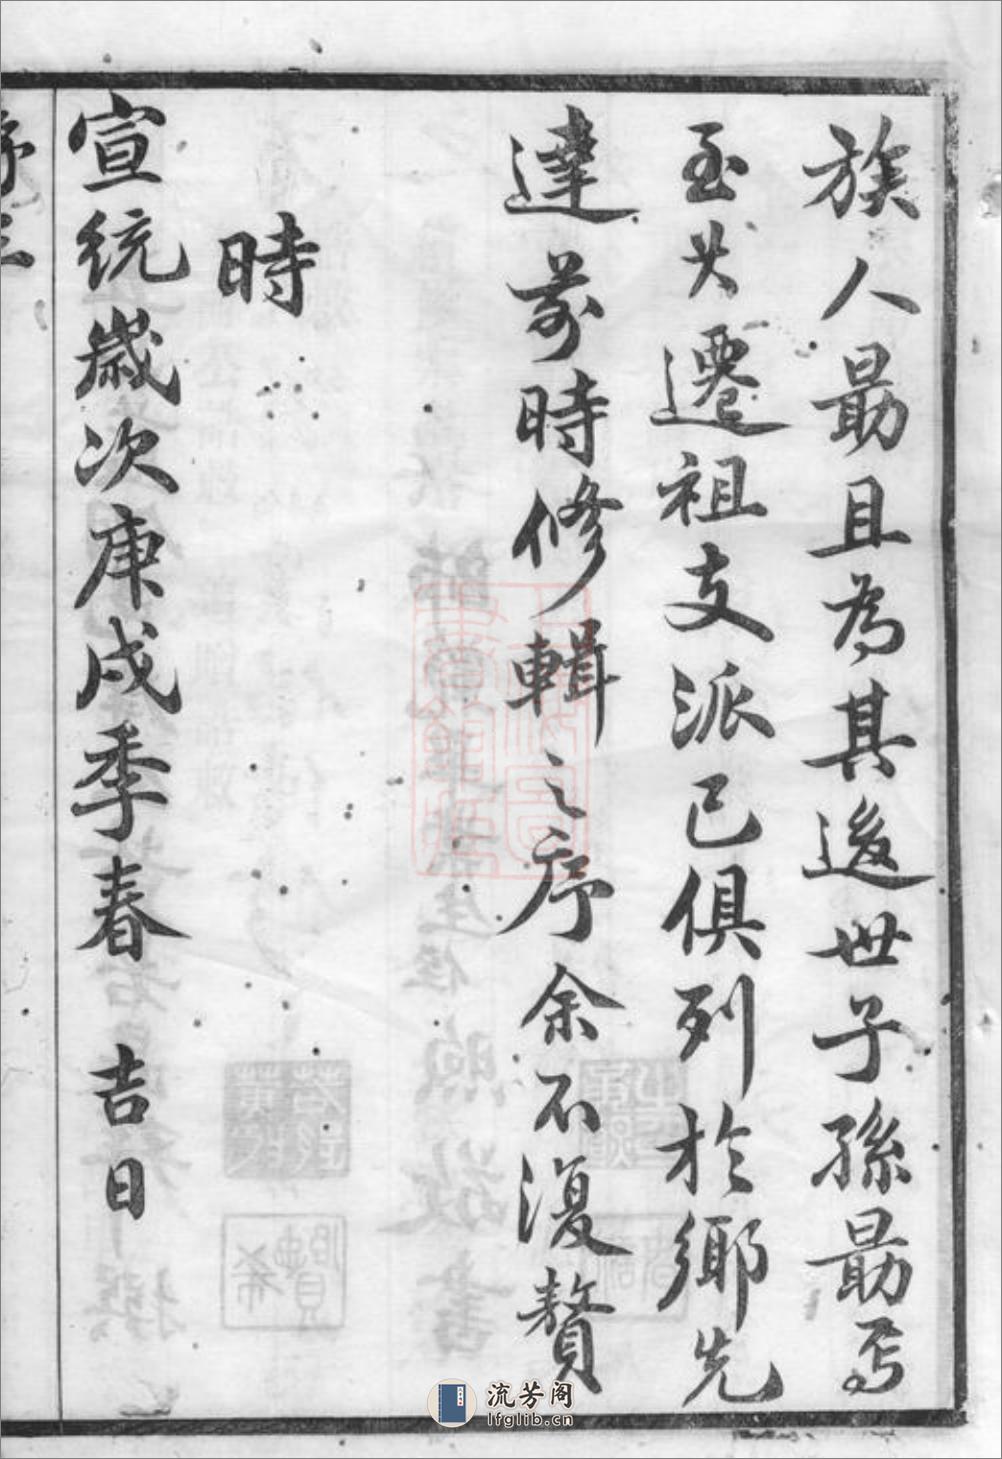 族人勗且為其後世子孫勗焉
至於遷祖支派已俱列於鄉先
達前時修輯之序余不復贅
時
宣統歲次庚戌季春 吉日
流芳阁
lfglib.cn